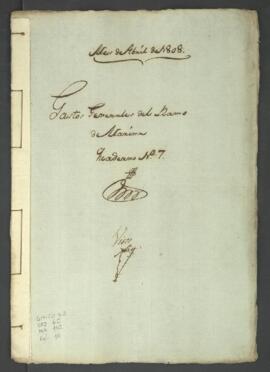 Mes de Abril de 1808.
Gastos Generales del Ramo
de Marina
Quaderno Nº 7.